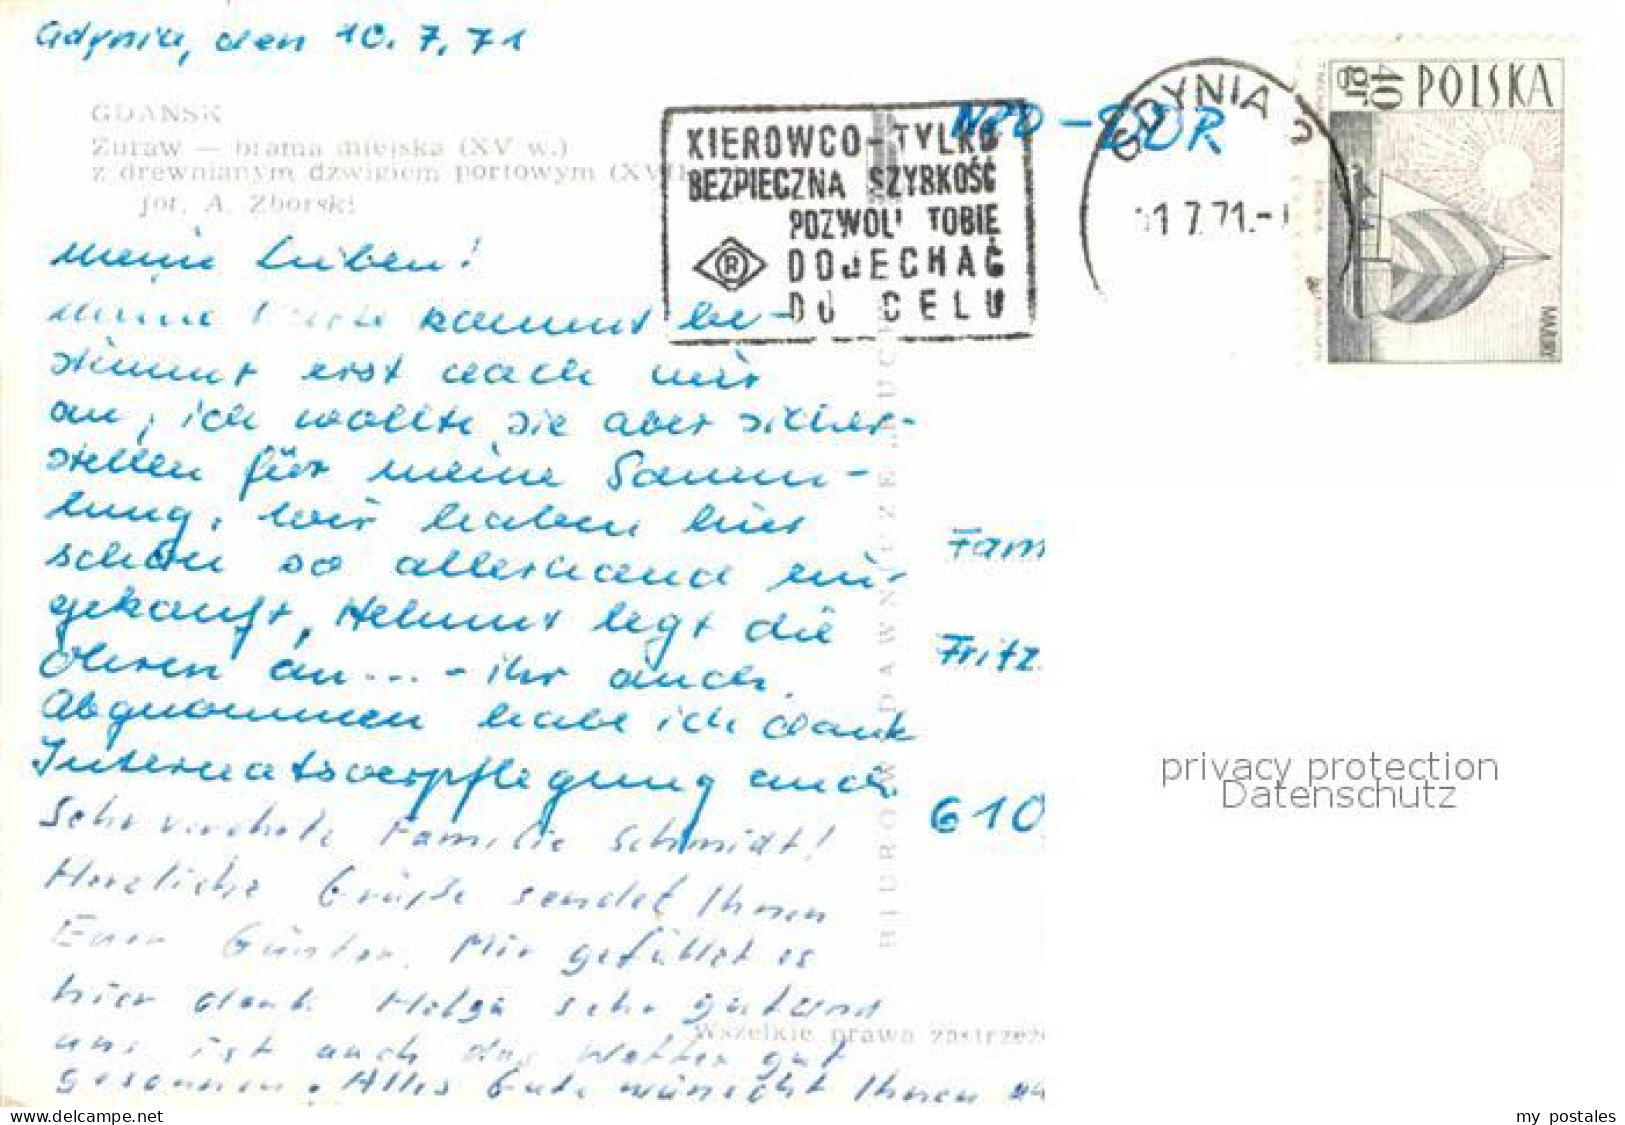 Gdynia, den 10.7.71
GDAŃSK
Żuraw — brama miejska (XV w.)
z drewnianym dźwigiem portowym (XVII
fot. A. Zborski
KIEROWCO - TYLKO
BEZPIECZNA SZYBKOŚĆ
POZWOLI TOBIE
DOJECHAĆ
DO CELU
R
NPD - DDR
GDYNIA 2
11 7.71.-
40 gr
POLSKA
MAZURY
Meine Lieben!
Meine Karte kommt be-
stimmt erst nach mir
an, ich wollte sie aber sicher-
stellen für meine Samm-
lung. Wir haben hier
schon so allerhand ein-
gekauft, Helmut legt die
Ohren an... - ihr auch.
Abgenommen habe ich dank
Internatsverpflegung auch.
Sehr verehrte Familie Schmidt!
Herzliche Grüße sendet Ihnen
Euer Günter. Mir gefällt es
hier dank Helga sehr gut und
uns ist auch das Wetter gut
gesonnen. Alles Gute wünscht Ihnen
Fam
Fritz.
610
BIURO WYDAWNICZE „RUCH"
Wszelkie prawa zastrzeż
privacy protection
Datenschutz
delcampe.net
my postales